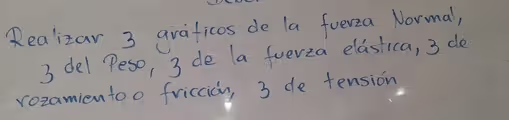 Realizar 3 gráficos de la fuerza Normal,
3 del Peso, 3 de la fuerza elástica, 3 de
rozamiento o fricción, 3 de tensión